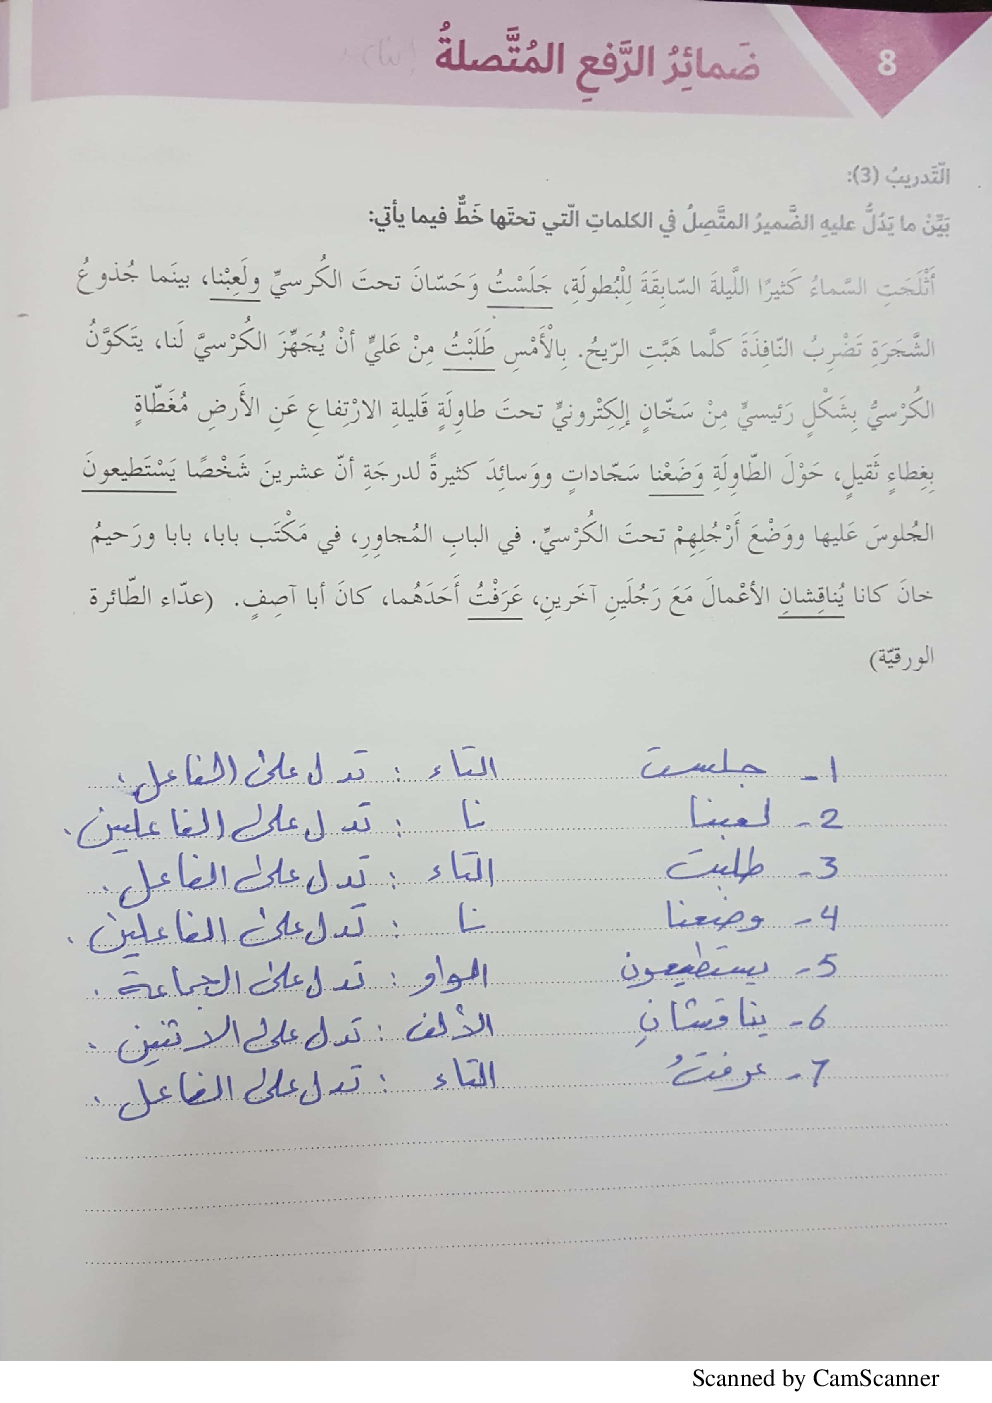 8
ضَمائِرُ الرَّفعِ المُتَّصلةُ
التَّدريبُ (3):
بَيِّنْ ما يَدُلُّ عليهِ الضَّميرُ المتَّصِلُ في الكلماتِ الّتي تحتَها خَطٌّ فيما يأتي:
أَثْلَجَتِ السَّماءُ كَثيرًا اللَّيلةَ السّابِقَةَ لِلْبُطولَةِ، جَلَسْتُ وَحَسّانَ تحتَ الكُرسيِّ ولَعِبْنا، بينَما جُذوعُ
الشَّجَرَةِ تَضْرِبُ النّافِذَةَ كلَّما هَبَّتِ الرّيحُ. بِالْأَمْسِ طَلَبْتُ مِنْ عَليٍّ أنْ يُجَهِّزَ الكُرْسيَّ لَنا، يتَكوَّنُ
الكُرْسيُّ بِشَكْلٍ رَئيسيٍّ مِنْ سَخّانٍ إلِكِترونيٍّ تحتَ طاوِلَةٍ قَليلةِ الارْتِفاعِ عَنِ الأَرضِ مُغَطّاةٍ
بِغِطاءٍ ثَقيلٍ، حَوْلَ الطّاوِلَةِ وَضَعْنا سَجّاداتٍ ووَسائِدَ كثيرةً لدرجَةِ أنّ عشرينَ شَخْصًا يَسْتَطيعونَ
الجُلوسَ عَليها ووَضْعَ أَرْجُلِهِمْ تحتَ الكُرْسيِّ. في البابِ المُجاوِرِ، في مَكْتَب بابا، بابا ورَحيمُ
خانَ كانا يُناقِشانِ الأعْمالَ مَعَ رَجُلَينِ آخَرينِ، عَرَفْتُ أَحَدَهُما، كانَ أبا آصِفٍ. (عدّاء الطّائرة
الورقيّة)
1- جلست التاء : تدل على الفاعل.
2- لعبنا نا : تدل على الفاعلين.
3- طلبت التاء : تدل على الفاعل.
4- وضعنا نا : تدل على الفاعلين.
5- يستطيعون الواو : تدل على الجماعة.
6- يناقشانِ الألف : تدل على الاثنين.
7- عرفتُ التاء : تدل على الفاعل.
Scanned by CamScanner